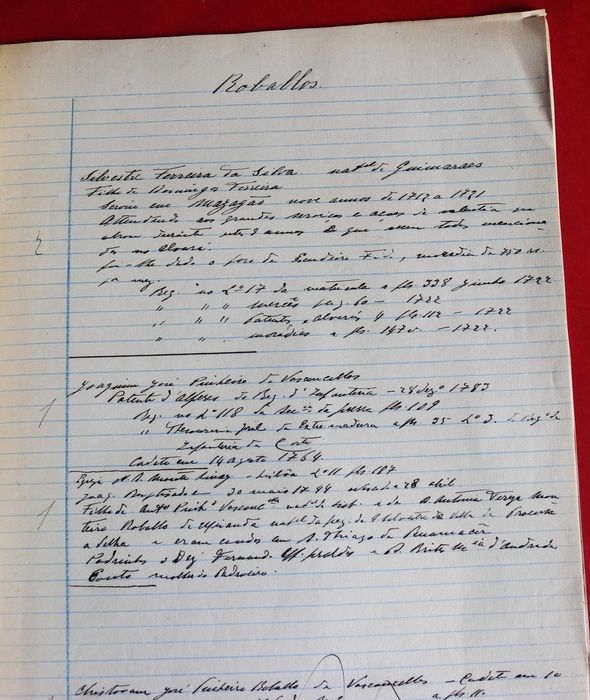 Roballos
Silvestre Ferreira da Silva natal de Guimarães
Filho de Domingos Ferreira
Serviu em Mazagão nove annos de 1712 a 1721
Attendendo aos grandes serviços e actos de valentia que
obrou durante estes 9 annos e que vem todos menciona
dos no Alvará
foi-lhe dado o foro de Escudeiro Fid., moradia de 750 rs.
por mez.
Reg. no Lº 17 da matricula a fls. 338 junho 1722
" " " mercês pag. 60 - 1722
" " " Patents. e Alvarás a fls. 112 - 1722
" " " moradias a fls. 147 v. - 1722.
2
Joaquim José Pinheiro de Vasconcellos
Patente d'Alferes do Reg. d'Infanteria - 28 dezº 1783
Reg. no Lº 118 da Secr. da guerra fls. 109
" Thesouraria geral da Estremadura a fls. 35 Lº 3. do Reg. de
Infanteria da Corte
Cadete em 14 agosto 1764.
1
Lisboa Lº 11 fls. 187
Joaq. Baptisado 30 maio 1744 28 abil
Filho de Antº Pinhº Vasconcellos natal de e de D. Antonia Mon
teiro Roballo de natal da freg. de S. Silvestre da Villa de
a Velha e eram casados em S. Thiago de
Padrinhos o Dez. Fernando e D. Brites Mª d'Andrade
Couto mulher do Padroeiro.
1
Christovam José Pinheiro Roballo de Vasconcellos - Cadete em 10
a fls. 11.